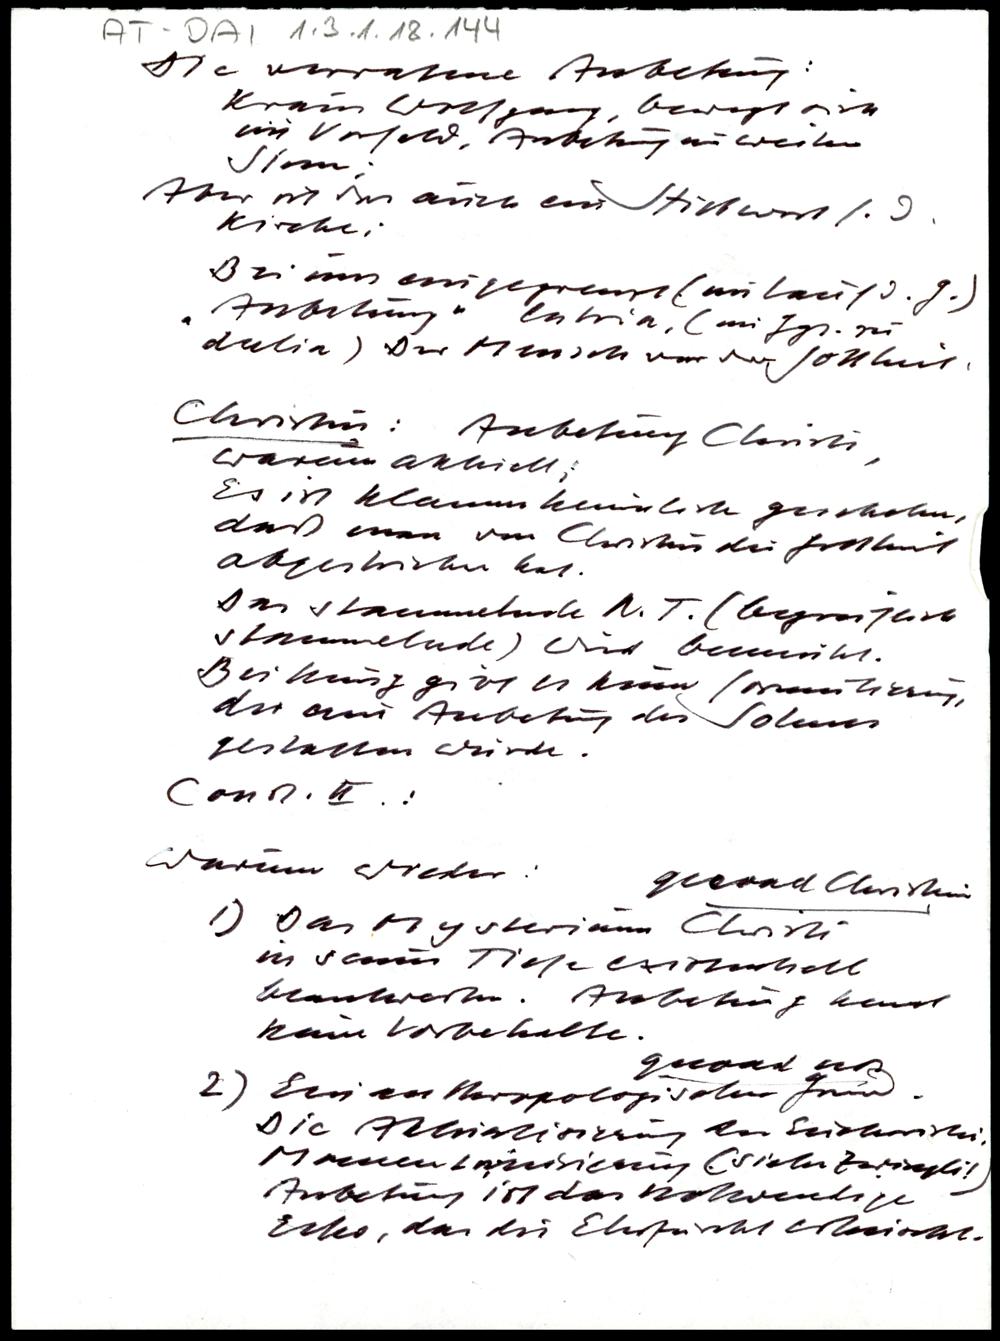 AT-DAI 1.3.1.18.144
Die Anbetung:
Krain Wolfgang, bewegt sich
im Vorfeld, Anbetung im weiten
Sinn;
Aber ist das auch ein Stichwort f. d.
Kirche;
Bei uns eingegrenzt (im Lauf d. G.)
"Anbetung" latria, (im Ggs. zu
dulia) Der Mensch vor der Gottheit.
Christus: Anbetung Christi,
warum aktuell;
Es ist klammheimlich geschehen,
daß man von Christus die Gottheit
abgestrichen hat.
Das stammelnde N.T. (begreiflich
stammelnde) wird bemüht.
Bei Küng gibt es keine Formulierung,
die eine Anbetung des Sohnes
gestatten würde.
Const. II.:
Warum wieder: quoad Christum
1) Das Mysterium Christi
in seiner Tiefe existentiell
beantworten. Anbetung kennt
keine Vorbehalte.
quoad nos
2) Ein anthropologischer Grund.
Die Aktualisierung der Eucharistie.
(Siehe Zwingli!)
Anbetung ist das notwendige
Echo, das die Ehrfurcht